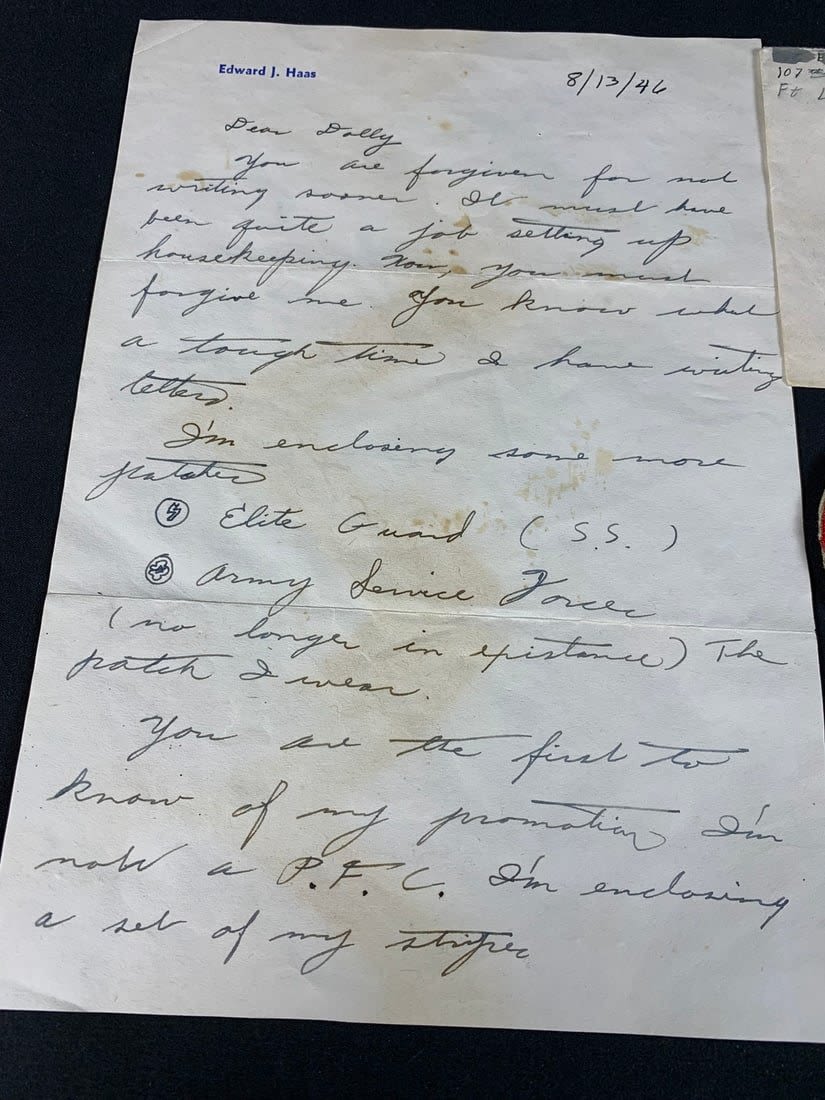 Edward J. Haas
8/13/46
Dear Dolly
You are forgiven for not
writing sooner. It must have
been quite a job setting up
housekeeping. Now, you must
forgive me. You know what
a tough time I have writing
letters.
I'm enclosing some more
patches
Elite Guard (S.S.)
Army Service Forces
(no longer in existance) The
patch I wear.
You are the first to
know of my promotion. I'm
now a P.F.C. I'm enclosing
a set of my stripes
107th
Ft